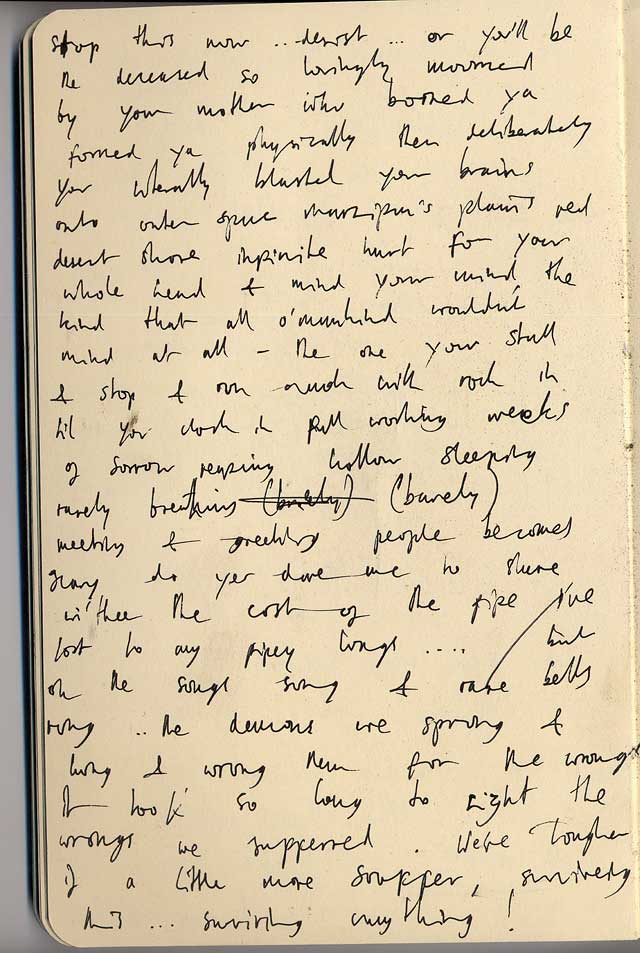 stop this now .. desist ... or you'll be
the deceased so lovingly mourned
by your mother who boobed ya
formed ya physically then deliberately
you literally blasted your brains
onto outer space marzipan's plain's red
desert shore infinite hurt for your
whole head & mind your mind, the
kind that all o'mankind wouldn't
mind at all – the one your skull
& stop & with rock in
til you clock in full working weeks
of sorrow reaping hollow sleeping
rarely breathing (barely)
meeting & greeting people becomes
scary do yer dare me to share
wi'thee the cost of the pipe I've
lost to my pipey lungs .... but
oh the songs sung & rare bells
rung .. the demons we sprung &
hung & wrong them for the wrongs
It took so long to right the
wrongs we suffered . We're tougher
if a little more scuffer, surviving
this ... surviving anything !